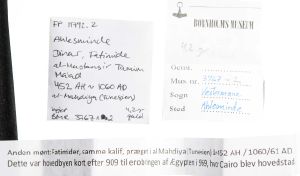 FP 11792.2
Ahlesminde
Dinar, Fatimide
al-Mustansir Tamim
Maad
452 AH ~ 1060 AD
al-Mahdiya (Tunesien)
4,2 gr
BMR 3767 guld
BORNHOLMS MUSEUM
4,2 g.
Gemt
Mus. nr. 3767
Sogn Vestermarie
Sted Ahlesminde
Anden mønt: Fatimider, samme kalif, præget i al Mahdiya (Tunesien) 452 AH / 1060/61 AD
Dette var hovedbyen kort efter 909 til erobringen af Ægypten i 969, hvor Cairo blev hovedstad